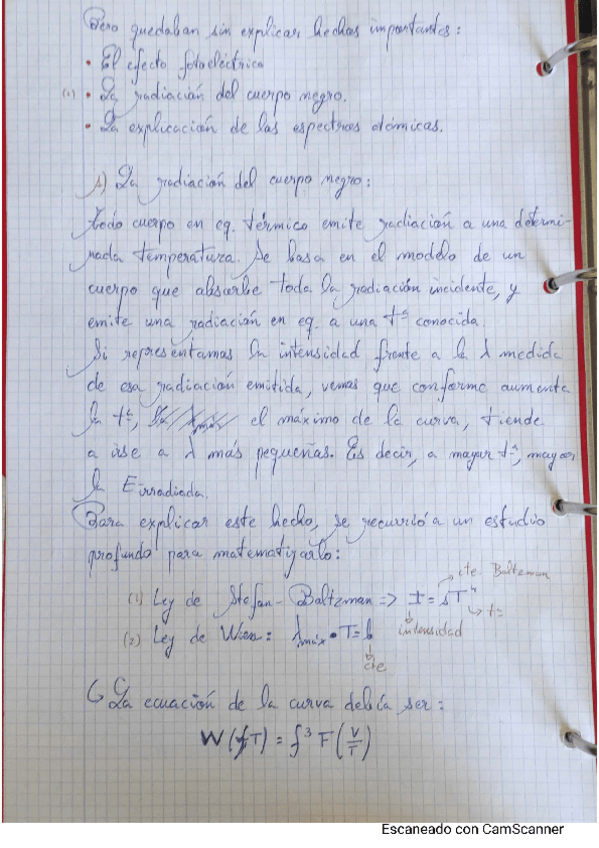 Pero quedaban sin explicar hechos importantes:
• El efecto fotoeléctrico
(1) • La radiación del cuerpo negro.
• La explicación de los espectros atómicos.
A) La radiación del cuerpo negro:
Todo cuerpo en eq. térmico emite radiación a una determi-
nada temperatura. Se basa en el modelo de un
cuerpo que absorbe toda la radiación incidente, y
emite una radiación en eq. a una tª conocida.
Si representamos la intensidad frente a la λ medida
de esa radiación emitida, vemos que conforme aumenta
la tª, el máximo de la curva, tiende
a irse a λ más pequeñas. Es decir, a mayor tª, mayor
la E irradiada.
Para explicar este hecho, se recurrió a un estudio
profundo para matematizarlo:
cte. Boltzman
(1) Ley de Stefan-Boltzman => I = sT⁴
intensidad tª
(2) Ley de Wien: λmáx • T = b
cte
↳ La ecuación de la curva debía ser:
W(f,T) = f³ F(v/T)
Escaneado con CamScanner